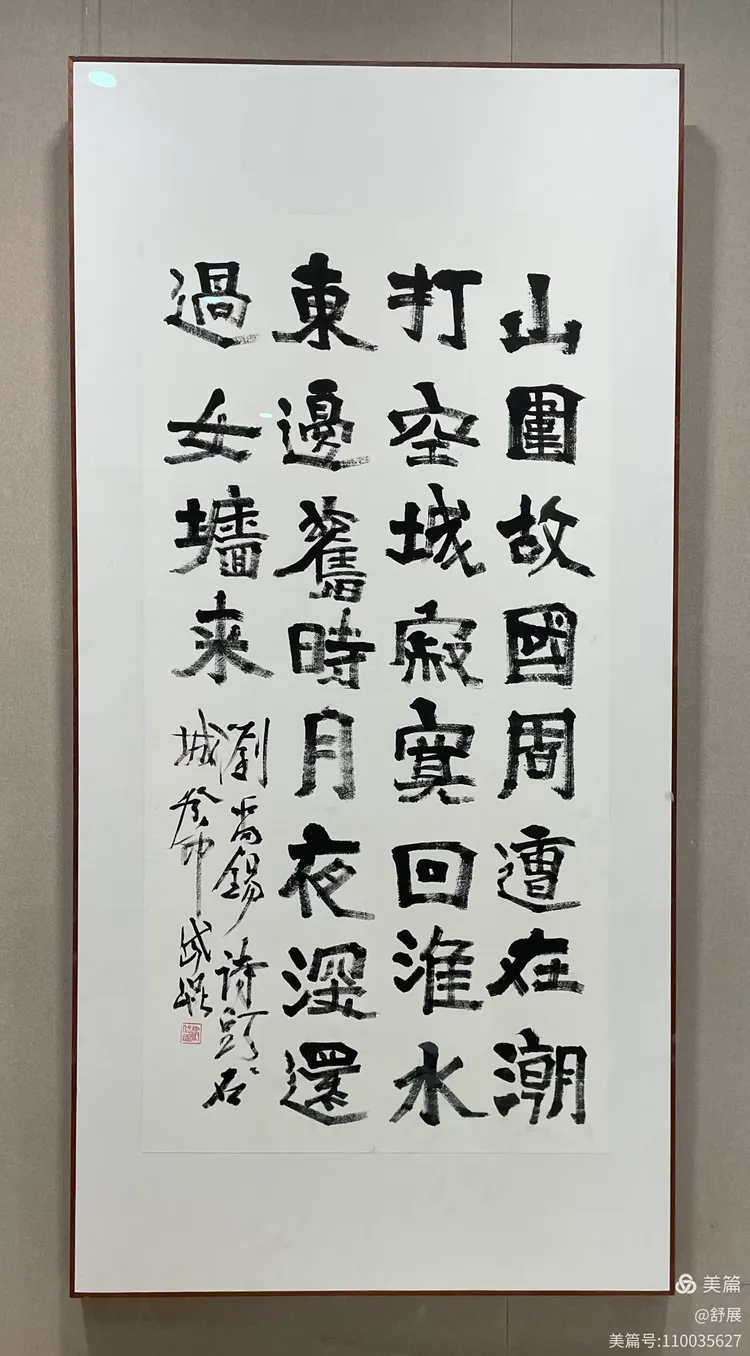 山圍故國周遭在潮
打空城寂寞回淮水
東邊舊時月夜深還
過女墻来
劉禹錫诗石
城癸卯
美篇
@舒展
美篇号:110035627